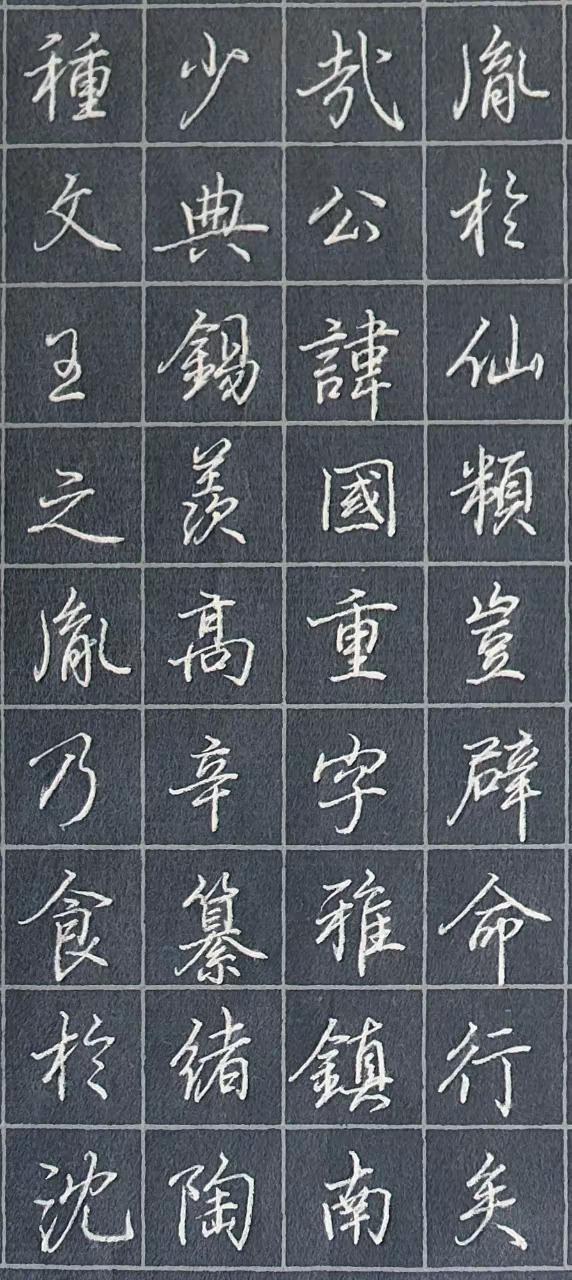 胤於仙類豈辟命行矣
哉公諱國重字雅鎮南
少典錫羨髙辛纂緒陶
種文王之胤乃食於沈